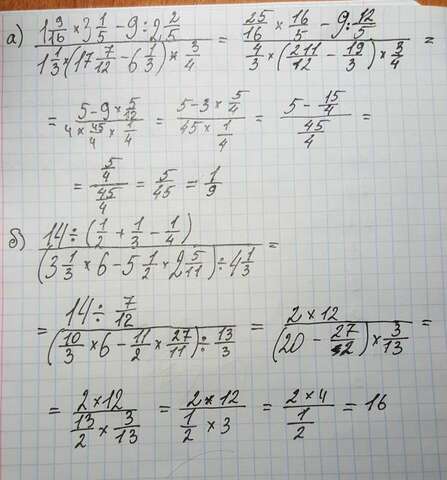 а) (1 9/16 × 3 1/5 − 9 : 2 2/5) / (1 1/3 × (17 7/12 − 6 1/3) × 3/4) = (25/16 × 16/5 − 9 : 12/5) / (4/3 × (211/12 − 19/3) × 3/4) =
= (5 − 9 × 5/12) / (4 × 45/4 × 1/4) = (5 − 3 × 5/4) / (45 × 1/4) = (5 − 15/4) / (45/4) =
= (5/4) / (45/4) = 5/45 = 1/9
б) 14 ÷ (1/2 + 1/3 − 1/4) / ((3 1/3 × 6 − 5 1/2 × 2 5/11) ÷ 4 1/3) =
= 14 ÷ 7/12 / ((10/3 × 6 − 11/2 × 27/11) ÷ 13/3) = 2 × 12 / ((20 − 27/2) × 3/13) =
= 2 × 12 / (13/2 × 3/13) = 2 × 12 / (1/2 × 3) = 2 × 4 / (1/2) = 16